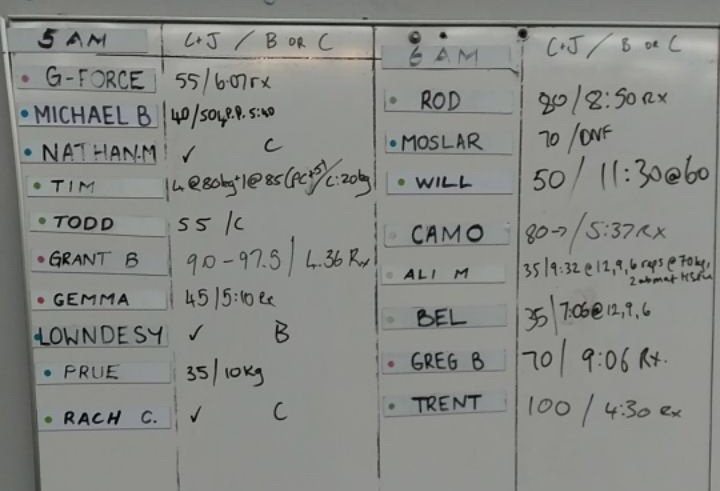 5 AM C+J / B OR C
G-FORCE 55/6:07rx
MICHAEL B 40/50kg P.P. 5:40
NATHAN.M ✓ C
TIM 4@80kg+1@85(PC+SJ)/C:20kg
TODD 55 /C
GRANT B 90-97.5 / 4.36 Rx
GEMMA 45/5:10 Rx
LOWNDESY ✓ B
PRUE 35/10kg
RACH C. ✓ C
6 AM C+J / B OR C
ROD 80/8:50 RX
MOSLAR 70 /DNF
WILL 50/ 11:30@60
CAMO 80-> / 5:37 RX
ALI M 35/9:32 @ 12,9,6 reps @ 70kg,
2 abmat HSPU
BEL 35/7:06@12,9,6
GREG B 70/ 9:06 Rx.
TRENT 100 / 4:30 Rx